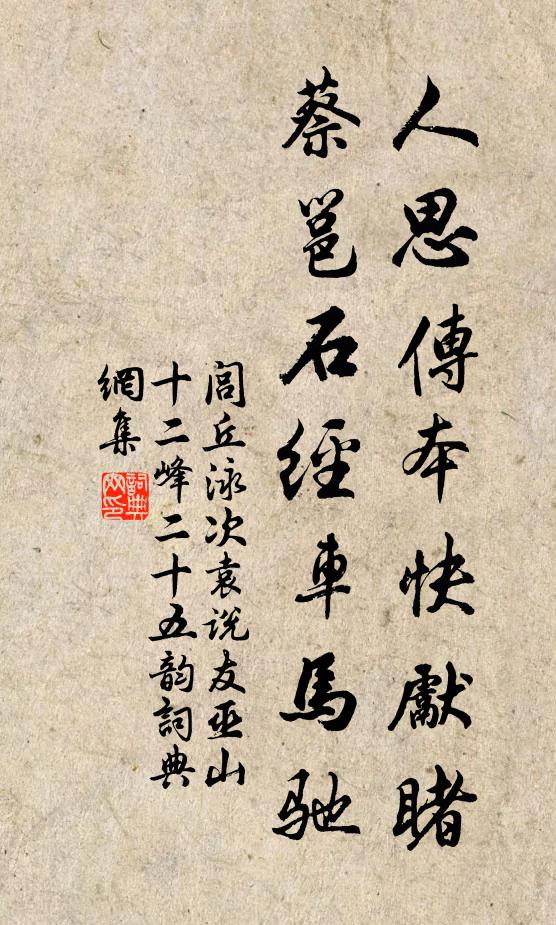 人思傳本快獻睹
蔡邕石經車馬馳
閭丘泳次袁說友巫山
十二峰二十五韵詞典
網集
詞典
網印